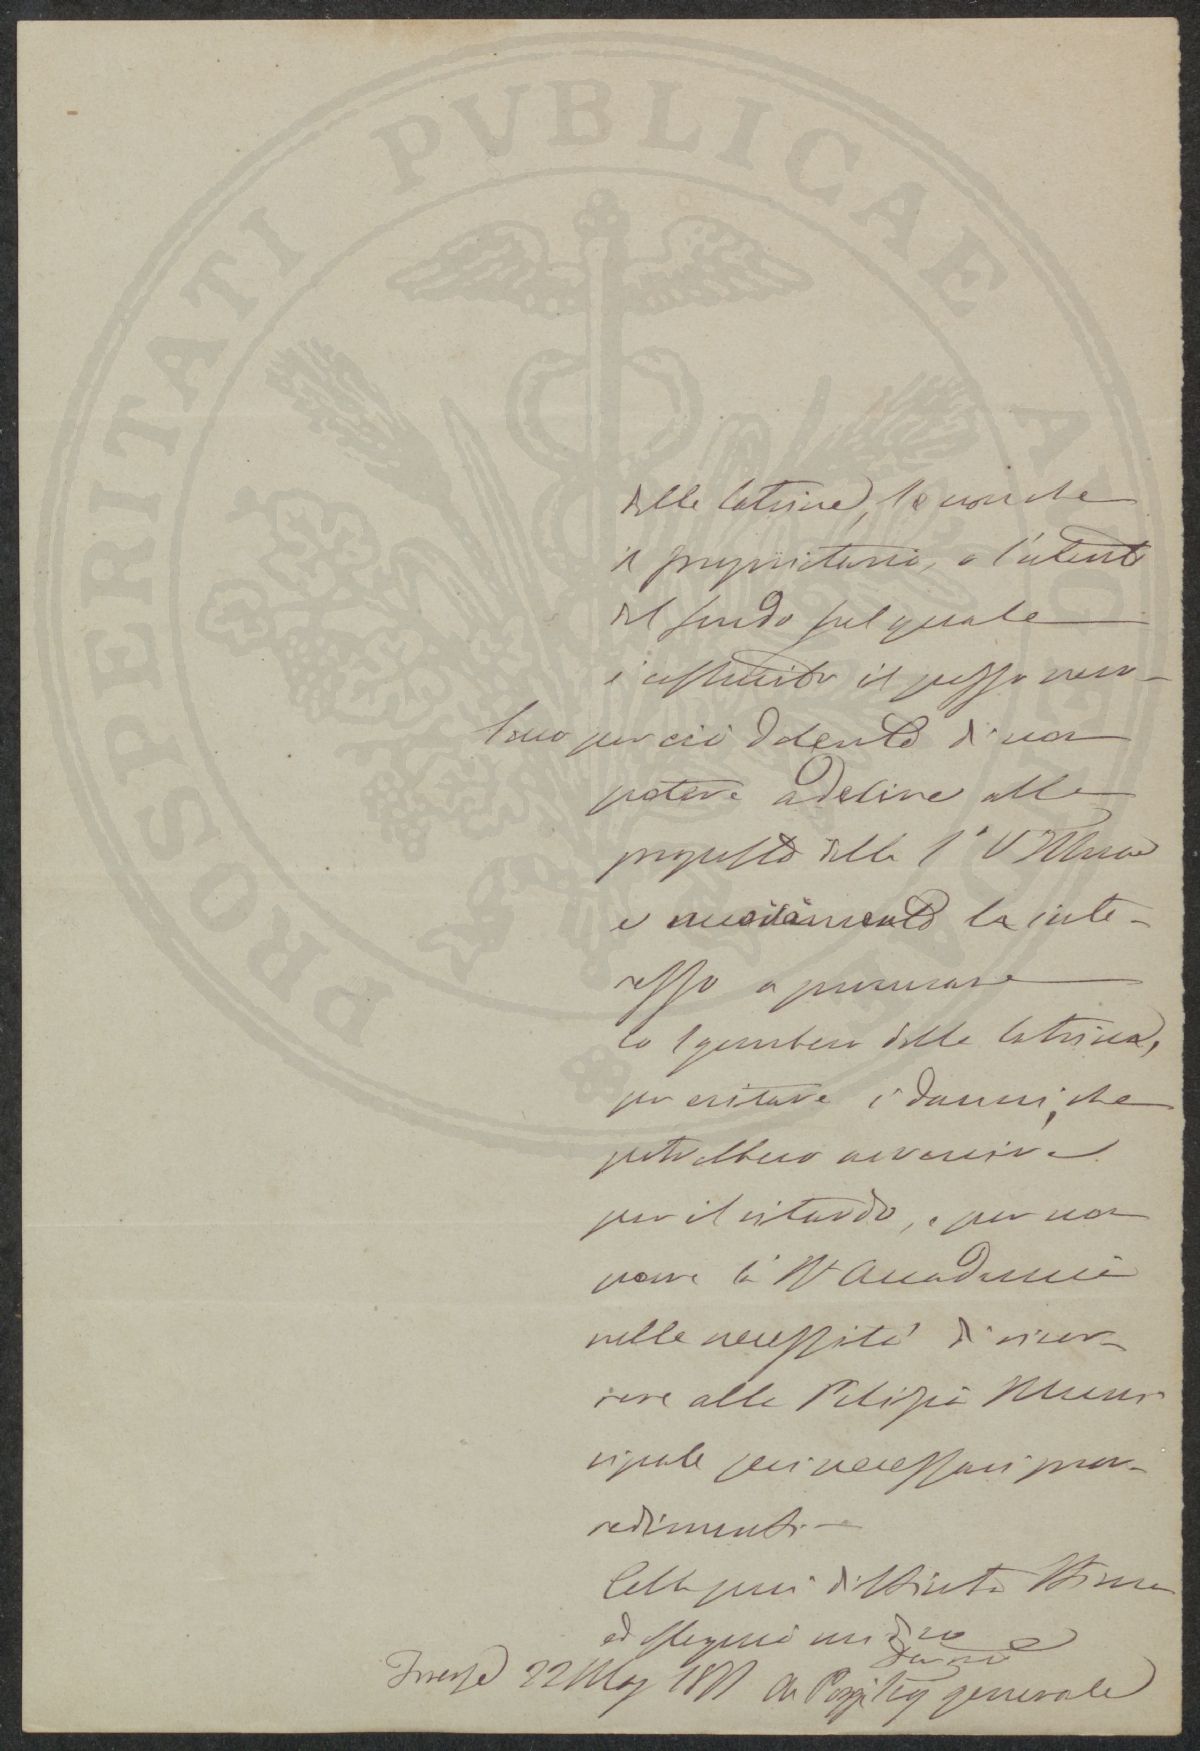 PROSPERITATI PVBLICAE AVGENDAE
delle latrine, se non che
il proprietario, o l'utente
del fondo sul quale
è costruito il pozzo nero
Sono perciò dolente di non
potere aderire alla
proposta della S. V. Illma
e nuovamente la inte-
resso a procurare
lo sgombero delle latrine,
per evitare i danni, che
potrebbero avvenire
per il ritardo, e per non
porre la R. Accademia
nella necessità di ricor-
rere alla Polizia Muni
cipale pei necessari prov-
vedimenti.
Colla più distinta stima
ed ossequio mi
Firenze 22 Mag generale